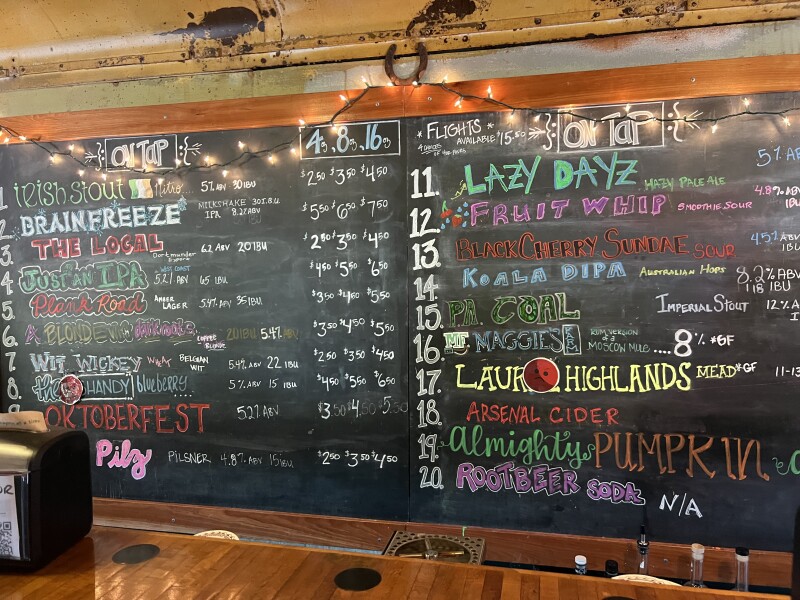 ON TAP
4oz, 8oz, 16oz
1. Irish Stout Nitro... 5% ABV 30 IBU $2.50 $3.50 $4.50
2. BRAINFREEZE MILKSHAKE IPA 30 I.B.U. 8.2% ABV $5.50 $6.50 $7.50
3. THE LOCAL Dortmunder Export 6.2 ABV 20 IBU $2.50 $3.50 $4.50
4. JUST AN IPA WEST COAST 5.2% ABV 65 IBU $4.50 $5.50 $6.50
5. Plank Road AMBER LAGER 5.4% ABV 35 IBU $3.50 $4.50 $5.50
6. A BLONDE NAMED COFFEE BLONDE 20 IBU 5.4% ABV $3.50 $4.50 $5.50
7. WIT WICKEY BELGIAN WIT 5.4% ABV 22 IBU $2.50 $3.50 $4.50
8. the HANDY blueberry 5% ABV 15 IBU $4.50 $5.50 $6.50
OKTOBERFEST 5.2% ABV $3.50 $4.50 $5.50
Pilz PILSNER 4.8% ABV 15 IBU $2.50 $3.50 $4.50
* FLIGHTS * AVAILABLE $15.50
ON TAP
11. LAZY DAYZ HAZY PALE ALE 5% ABV
12. FRUIT WHIP SMOOTHIE SOUR 4.8% ABV IBU
13. BLACK CHERRY SUNDAE SOUR 4.5% ABV IBU
14. KOALA DIPA AUSTRALIAN HOPS 8.2% ABV 118 IBU
15. PA COAL IMPERIAL STOUT 12% A
16. MT. MAGGIES RUM VERSION of a MOSCOW MULE .... 8% *GF
17. LAUR HIGHLANDS MEAD *GF 11-13
18. ARSENAL CIDER
19. Almighty PUMPKIN
20. ROOTBEER SODA N/A